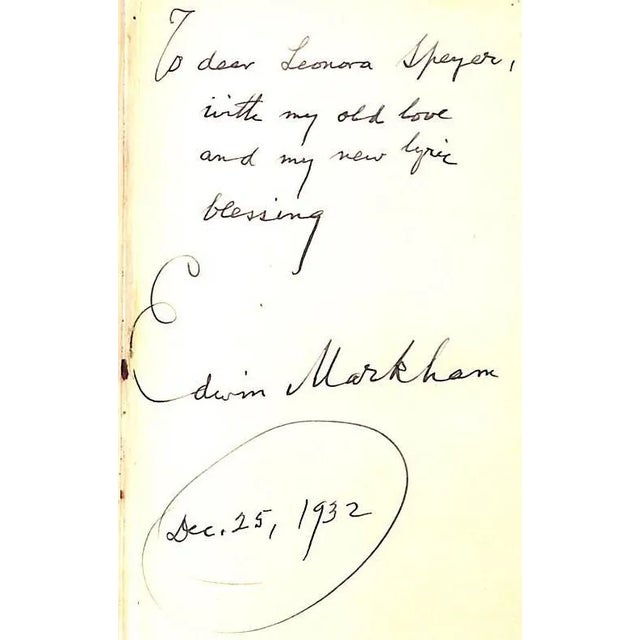 To dear Leonora Speyer,
with my old love
and my new lyric
blessing
Edwin Markham
Dec. 25, 1932